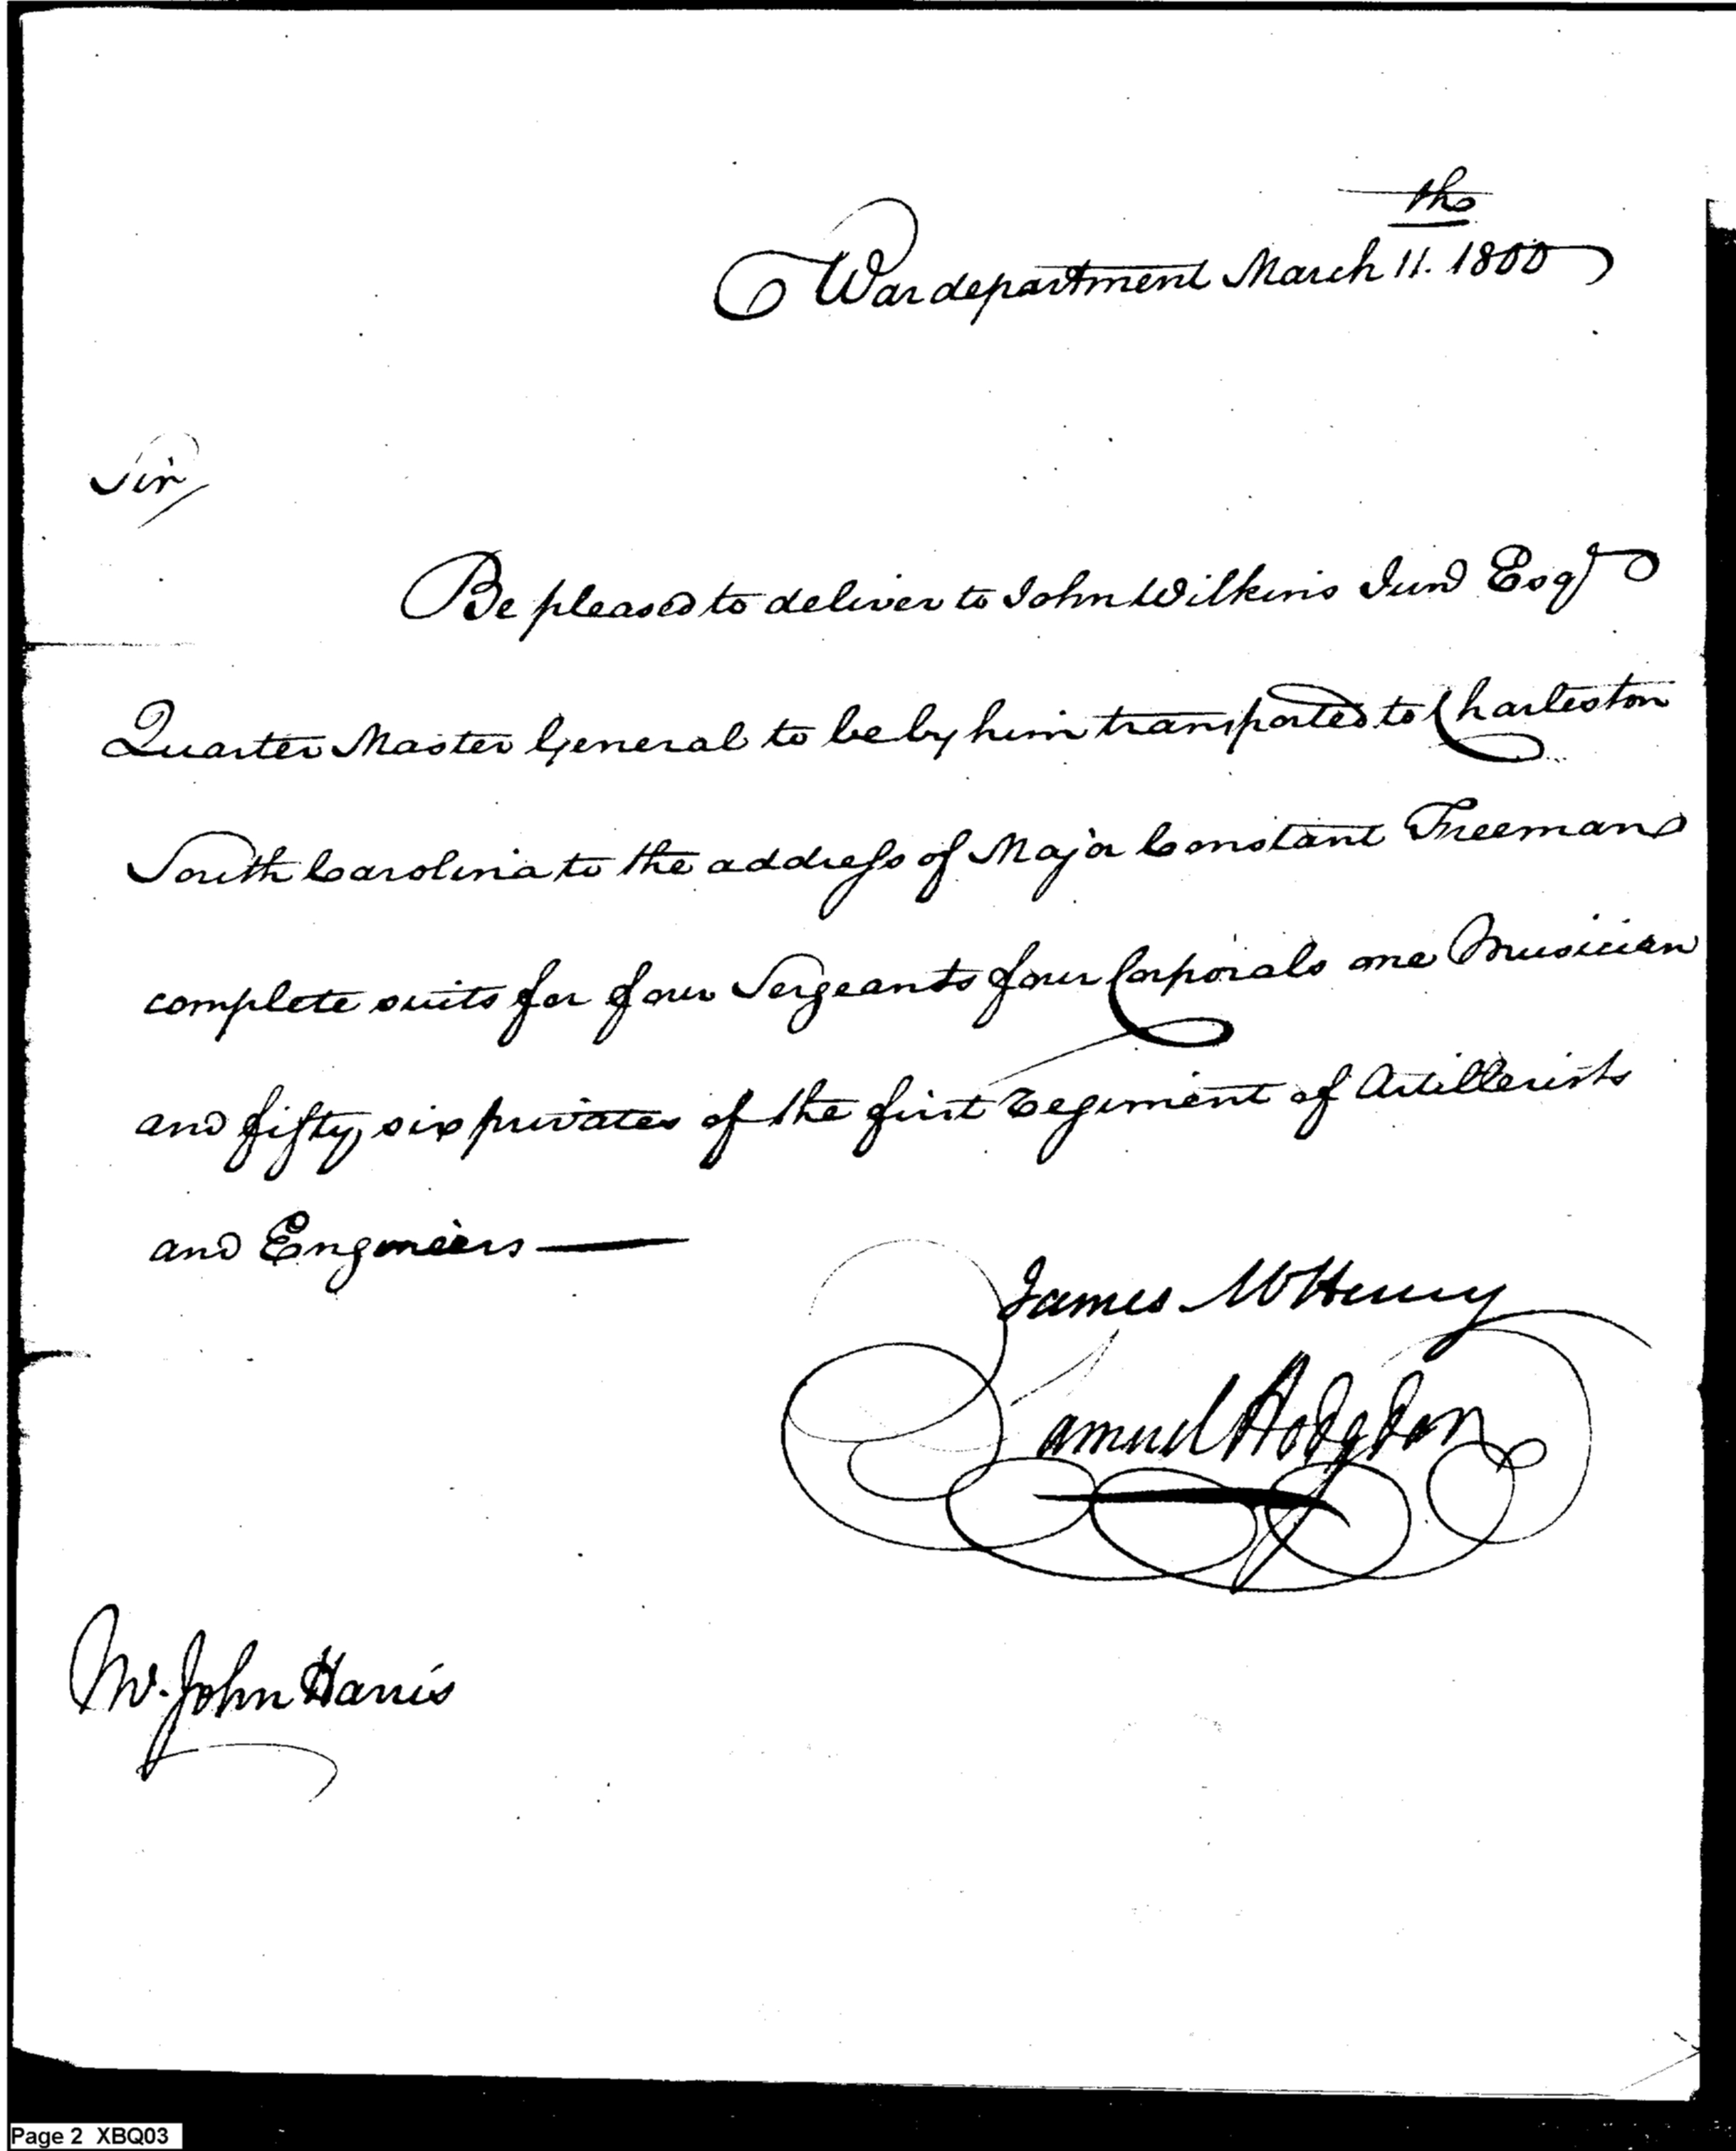 War department March 11.th 1800
Sir
Be pleased to deliver to John Wilkins Junr Esqr
Quarter Master General to be by him transported to Charleston
South Carolina to the address of Major Constant Freeman
complete suits for four Sergeants four Corporals one Musician
and fifty six privates of the first Regiment of Artillerists
and Engineers —
James McHenry
Samuel Hodgdon
Mr. John Harris
Page 2 XBQ03